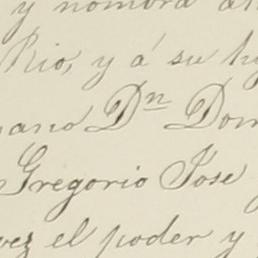 y nombra al
Rio, y á su h
mano Dn Dom
Gregorio Jose
vez el poder y